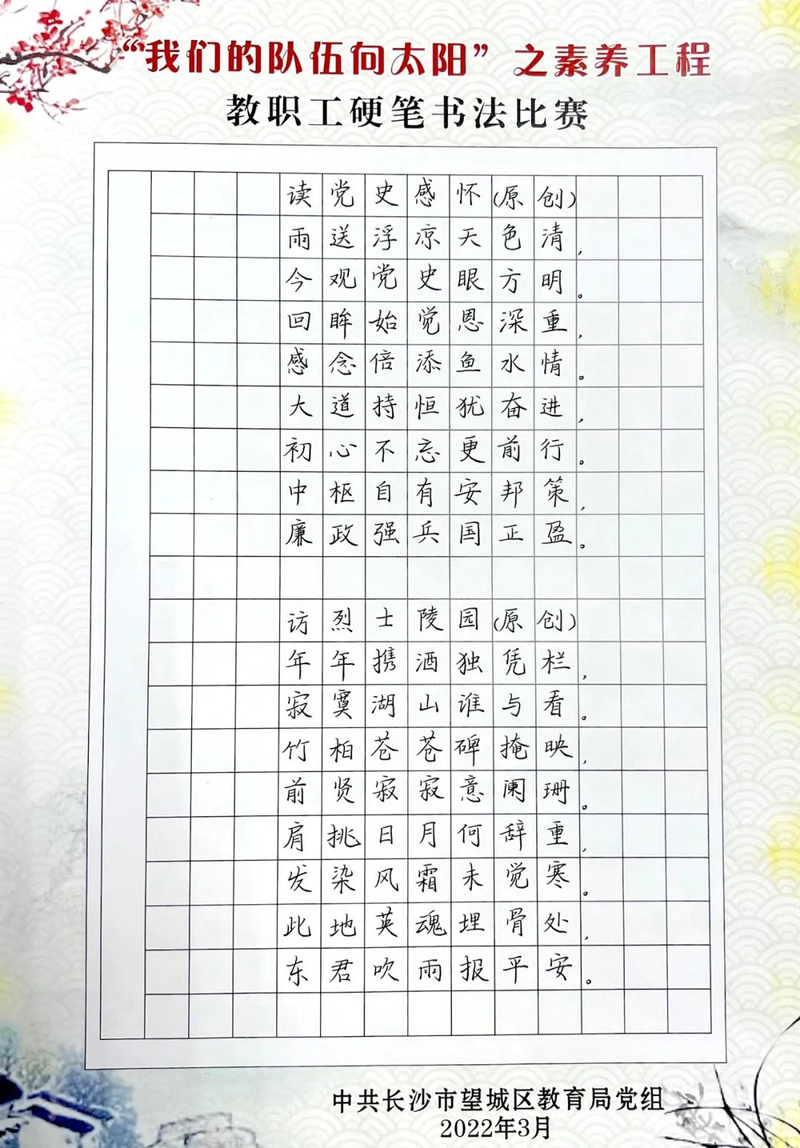 “我们的队伍向太阳”之素养工程
教职工硬笔书法比赛
读党史感怀(原创)
雨送浮凉天色清，
今观党史眼方明。
回眸始觉恩深重，
感念倍添鱼水情。
大道持恒犹奋进，
初心不忘更前行。
中枢自有安邦策，
廉政强兵国正盈。
访烈士陵园(原创)
年年携酒独凭栏，
寂寞湖山谁与看。
竹柏苍苍碑掩映，
前贤寂寂意阑珊。
肩挑日月何辞重，
发染风霜未觉寒。
此地英魂埋骨处，
东君吹雨报平安。
中共长沙市望城区教育局党组
2022年3月